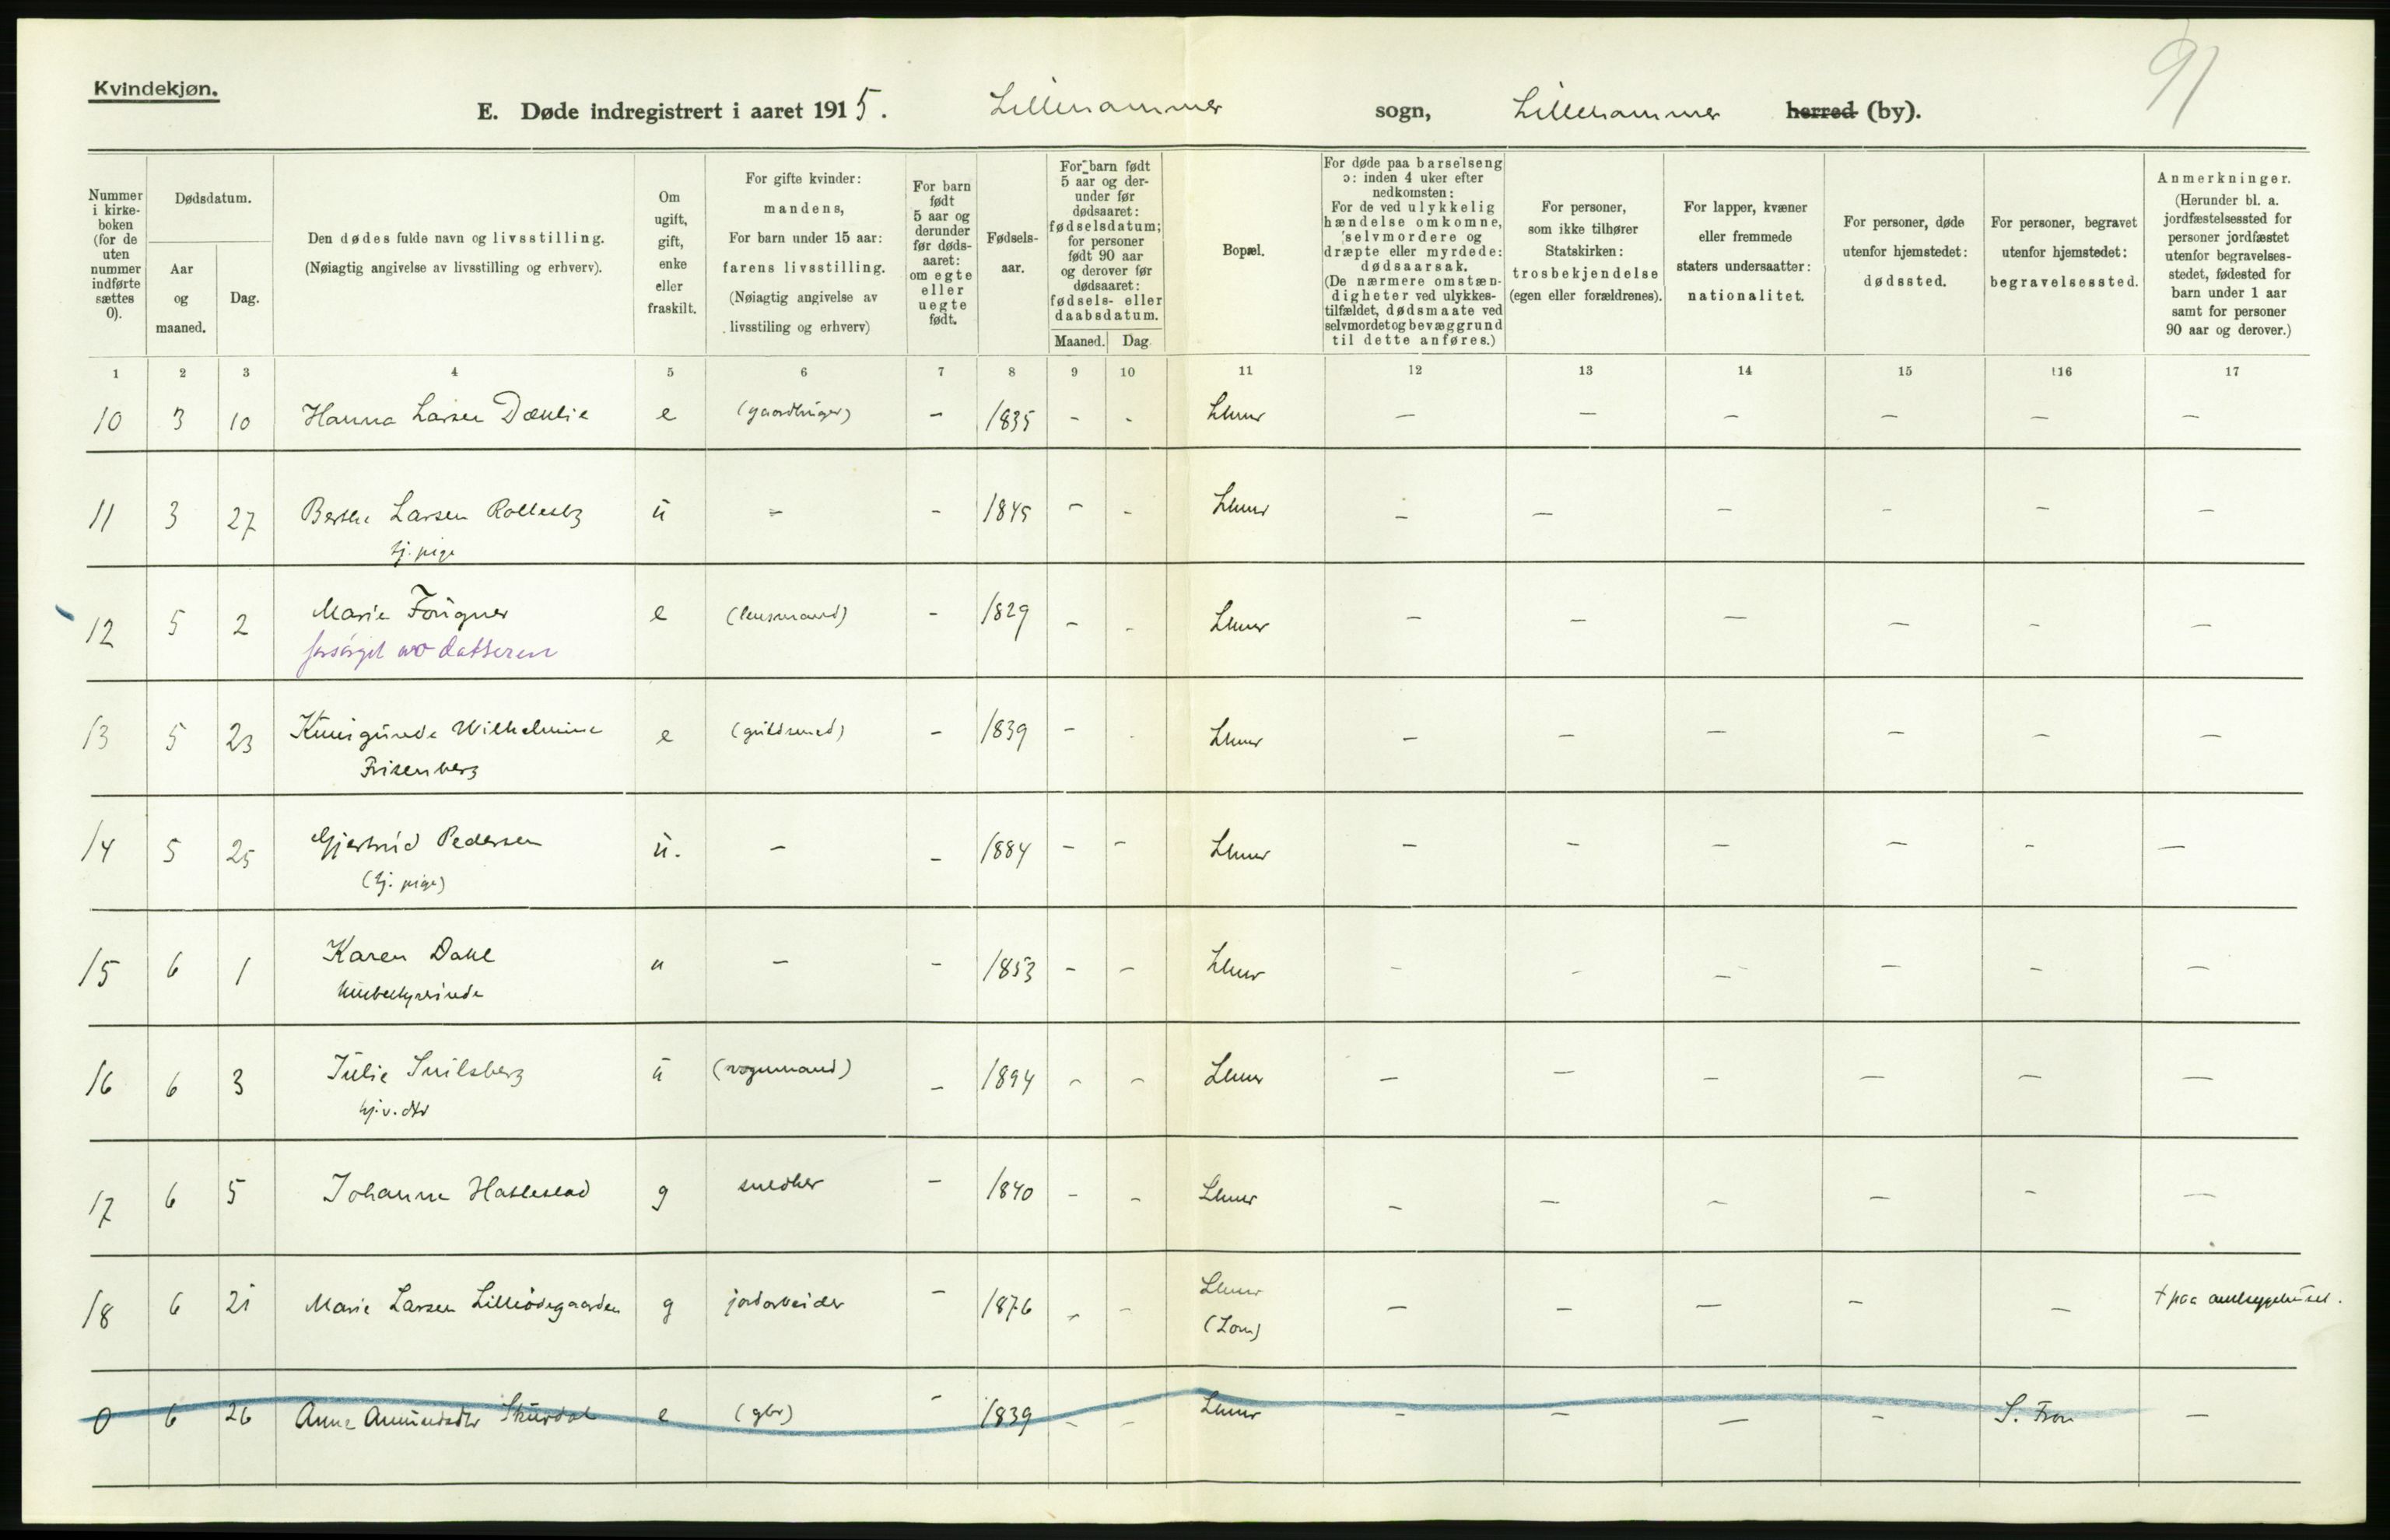 91
Kvindekjøn.
E. Døde indregistrert i aaret 1915. Lillehammer sogn, Lillehammer herred (by).
Nummer i kirke-boken (for de uten nummer indførte sættes 0).
Dødsdatum.
Aar og maaned.
Dag.
Den dødes fulde navn og livsstilling.
(Nøiagtig angivelse av livsstilling og erhverv).
Om ugift, gift, enke eller fraskilt.
For gifte kvinder: mandens,
For barn under 15 aar: farens livsstilling.
(Nøiagtig angivelse av livsstiling og erhverv)
For barn født 5 aar og derunder før døds-aaret: om egte eller uegte født.
Fødsels-aar.
For barn født 5 aar og der-under før dødsaaret: fødselsdatum; for personer født 90 aar og derover før dødsaaret: fødsels- eller daabsdatum.
Maaned. Dag
Bopæl.
For døde paa barselseng ɔ: inden 4 uker efter nedkomsten:
For de ved ulykkelig hændelse omkomne, selvmordere og dræpte eller myrdede: dødsaarsak.
(De nærmere omstæn-digheter ved ulykkes-tilfældet, dødsmaate ved selvmordet og bevæggrund til dette anføres.)
For personer, som ikke tilhører Statskirken: trosbekjendelse (egen eller forældrenes).
For lapper, kvæner eller fremmede staters undersaatter: nationalitet.
For personer, døde utenfor hjemstedet: dødssted.
For personer, begravet utenfor hjemstedet: begravelsessted.
Anmerkninger.
(Herunder bl. a. jordfæstelsessted for personer jordfæstet utenfor begravelses-stedet, fødested for barn under 1 aar samt for personer 90 aar og derover.)
1 2 3 4 5 6 7 8 9 10 11 12 13 14 15 16 17
10 3 10 Hanna Larsen Dæhlie e (gaardbruger) - 1835 - - Lhmr - - - - - -
11 3 27 Berthe Larsen ü - - 1845 - - Lhmr - - - - - -
tj. pige
12 5 2 Marie Foügner e (lensmand) - 1829 - - Lhmr - - - - - -
forsörget av datteren
13 5 23 Künigünde Wilhelmine e (güldsmed) - 1839 - - Lhmr - - - - - -
Frisenberg
14 5 25 Gjertrüd Pedersen ü. - - 1884 - - Lhmr - - - - - -
(tj. pige)
15 6 1 Karen Dahl u - - 1853 - - Lhmr - - - - - -
16 6 3 Jülie Smilsberg ü (vognmand) - 1894 - - Lhmr - - - - - -
hj.v. dtr
17 6 5 Johanne Haslestad g snedker - 1840 - - Lhmr - - - - - -
18 6 21 Marie Larsen Lilleödegaarden g jordarbeider - 1876 - - Lhmr - - - - - † paa amtssygehüset.
(Lom)
0 6 26 Anne Amündsdtr Skürdal e (gbr) - 1839 - - Lhmr - - - - S. Fron -